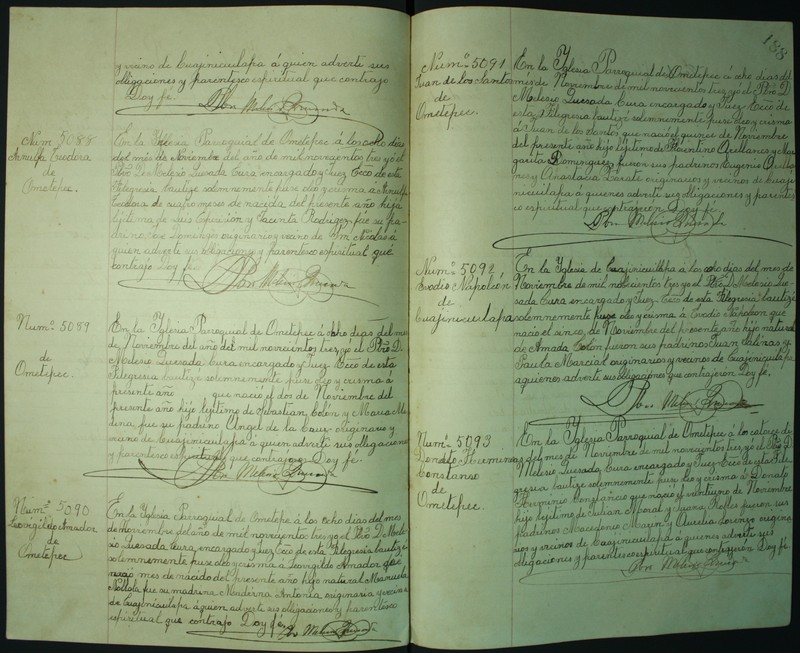 y vecino de Cuajinicuilapa á quien adverti sus
obligaciones y parentesco espiritual que contrajo
Doy fé.
Num 5088
Eudora
de
Ometepec.
En la Iglesia Parroquial de Ometepec á los ocho dias
del mes de Noviembre del año de mil novecientos tres yó el
Pbro D. Melesio Quesada Cura encargado y Juez Ecco de esta
Filegresia bautize solemnemente puse oleo y crisma á
Eudora de cuatro meses de nacida, del presente año hija
legitima de Luis y Jacinta Rodriguez, fué su pa-
drino, José originario y vecino de San Nicolas á
quien adverti sus obligaciones y parentesco espiritual que
contrajo Doy fé.
Num. 5089
de
Ometepec.
En la Iglesia Parroquial de Ometepec á ocho dias del mes
de Noviembre del año del mil novecientos tres, yo el Pbro D.
Melesio Quesada, Cura encargado y Juez Ecco de esta
Filegresia bautize solemnemente puse oleo y crisma a
presente año que nació el dos de Noviembre del
presente año hijo legitimo de Sebastian Colón y Maria Me-
dina, fue su padrino Angel de la Cruz originario y
vecino de Cuajinicuilapa a quien adverti sus obligaciones
y parentesco espiritual que contrajo Doy fé.
Num. 5090
Leovigildo Amador
de
Ometepec
En la Iglesia Parroquial de Ometepec á los ocho dias del mes
de Noviembre del año de mil novecientos tres yo el Pbro D. Mele-
sio Quesada Cura encargado y Juez Ecco de esta Filegresia bautize
solemnemente puse oleo y crisma a Leovigildo Amador de
mes de nacido del presente año hijo natural Manuela
fue su madrina Antonia originaria y vecina
de Cuajinicuilapa a quien adverti sus obligaciones y parentesco
espiritual que contrajo Doy fé.
188
Num. 5091
Juan de los Santos
de
Ometepec.
En la Iglesia Parroquial de Ometepec á ocho dias del
mes de Noviembre de mil novecientos tres, yo el Pbro D
Melesio Quesada, Cura encargado y Juez Ecco de
esta Filegresia bautizé solemnemente, puse oleo y crisma
á Juan de los Santos que nació el quince de Noviembre
del presente año hijo legitimo de Florentino Arellanes y Mar-
garita Dominguez fueron sus padrinos Eugenio
y Anastacia Zarate originarios y vecinos de Cuaji-
nicuilapa á quienes adverti sus obligaciones y parentes-
co espiritual que contrajeron Doy fé.
Num. 5092
Evodio Napoleón
de
Cuajinicuilapa
En la Iglesia de Cuajinicuilapa á los ocho dias del mes de
Noviembre de mil novecientos tres yo el Pbro D. Melesio Que-
sada Cura encargado y Juez Ecco de esta Filegresia bautizé
solemnemente puse oleo y crisma á Evodio Napoleon que
nació el cinco de Noviembre del presente año hijo natural
de Amada Colón fueron sus padrinos Juan Salinas y
Paula Marcial originarios y vecinos de Cuajinicuilapa
a quienes adverti sus obligaciones que contrajeron Doy fé.
Num. 5093
Donato Herminio
Constanso
de
Ometepec.
En la Iglesia Parroquial de Ometepec á los catorce di-
as del mes de Noviembre de mil novecientos tres yó el Pbro D
Melesio Quesada Cura encargado y Juez Ecco de esta File-
gresia bautizé solemnemente puse oleo y crisma á Donato
Herminio que nació el veintiuno de Noviembre
hijo legitimo de Julian Moral y Juana Robles fueron sus
padrinos Macedonio Marin y Aurelia Lorenzo origina-
rios y vecinos de Cuajinicuilapa á quienes adverti sus
obligaciones y parentesco espiritual que contrajeron Doy fé.